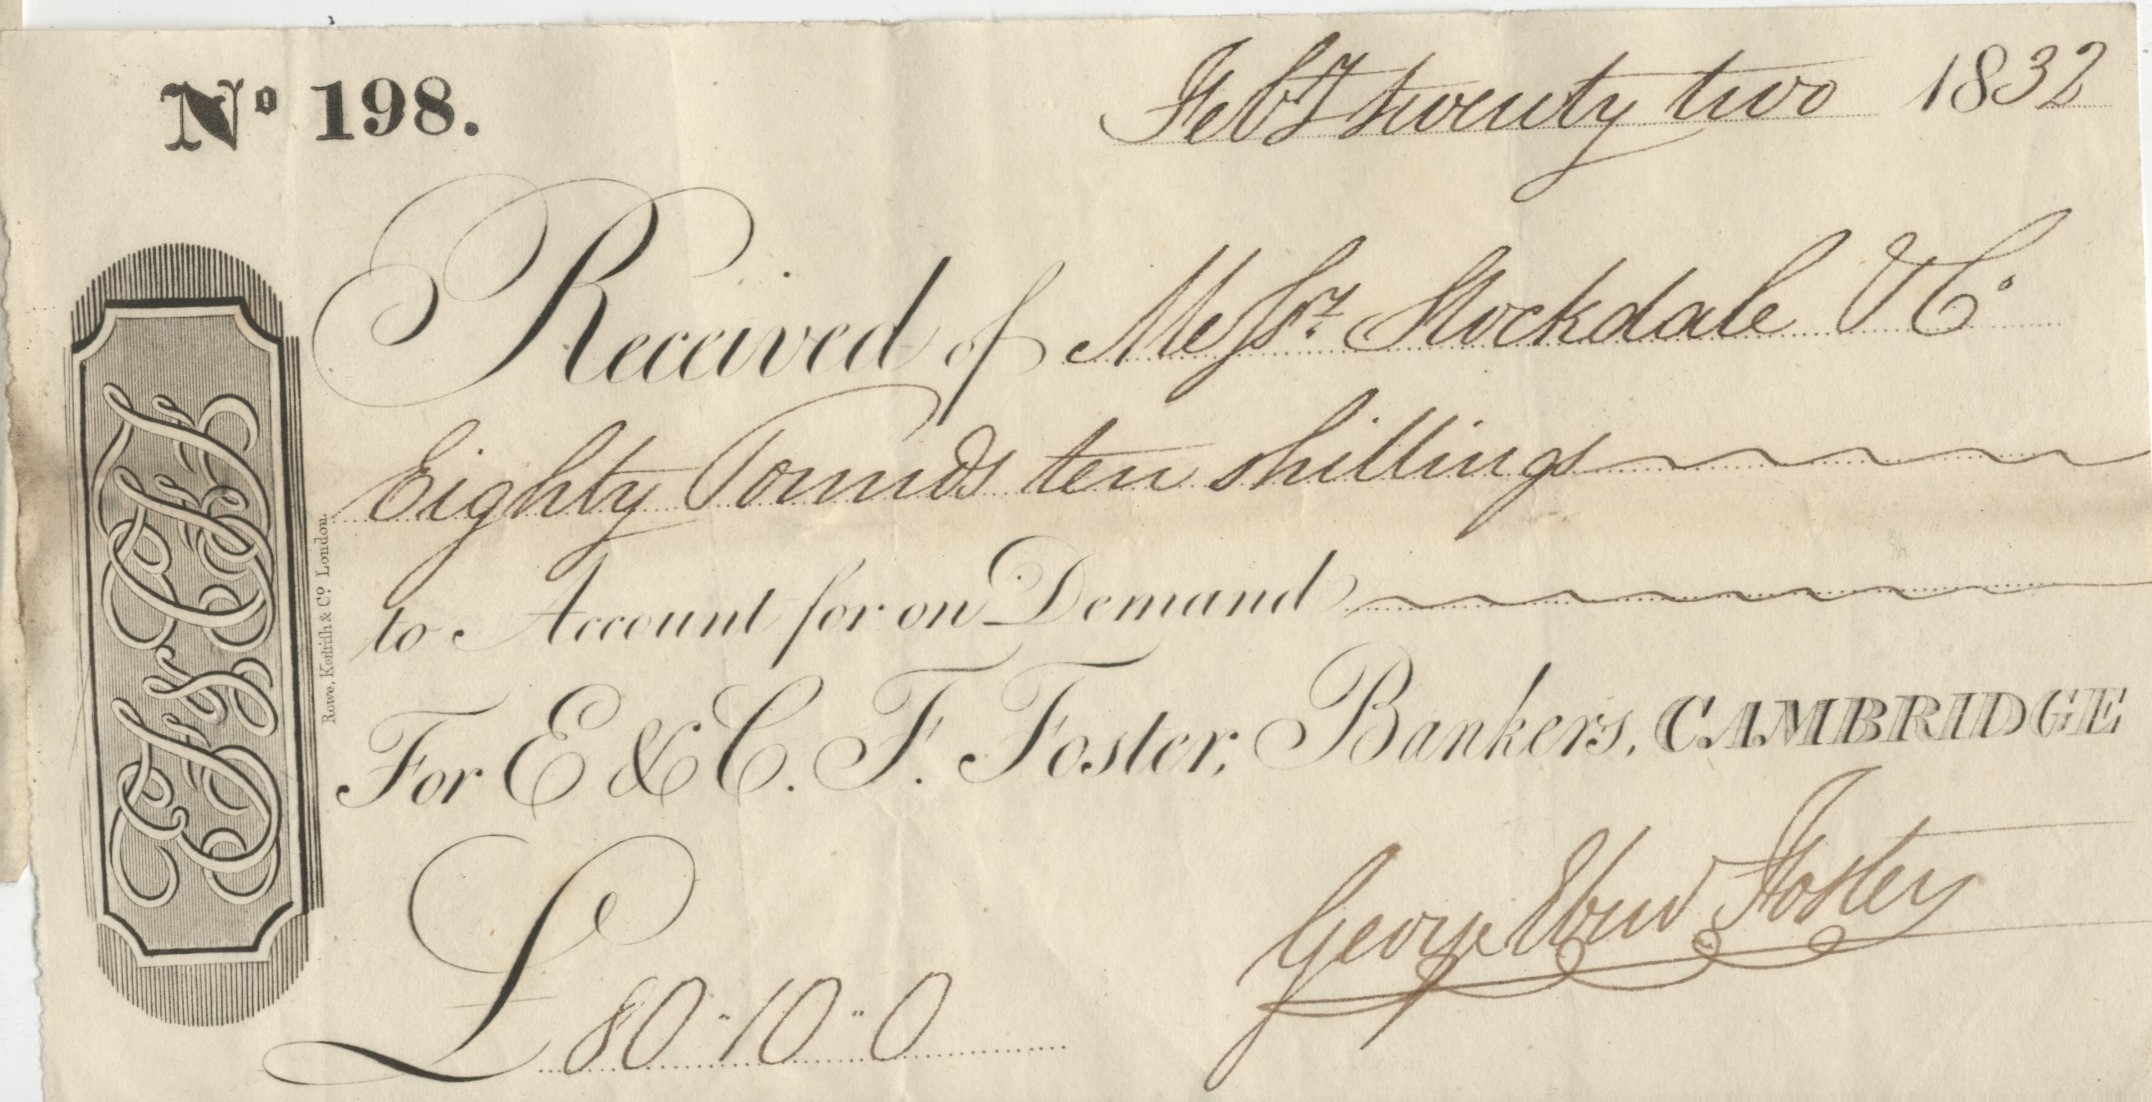 No 198.
Feby twenty two 1832
Received of Messrs Stockdale & Co
Eighty Pounds ten shillings
to Account for on Demand
For E & C. F. Foster, Bankers, CAMBRIDGE
George Ebenr Foster
£ 80 " 10 " 0
Rowe, & Co. London.